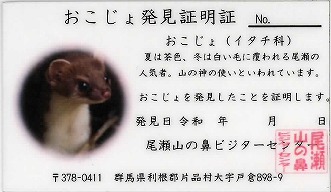 おこじょ発見証明証 No.
おこじょ（イタチ科）
夏は茶色、冬は白い毛に覆われる尾瀬の
人気者。山の神の使いといわれています。
おこじょを発見したことを証明します。
発見日 令和 年 月 日
尾瀬山の鼻ビジターセンター
尾瀬
山の鼻
〒378-0411 群馬県利根郡片品村大字戸倉898-9